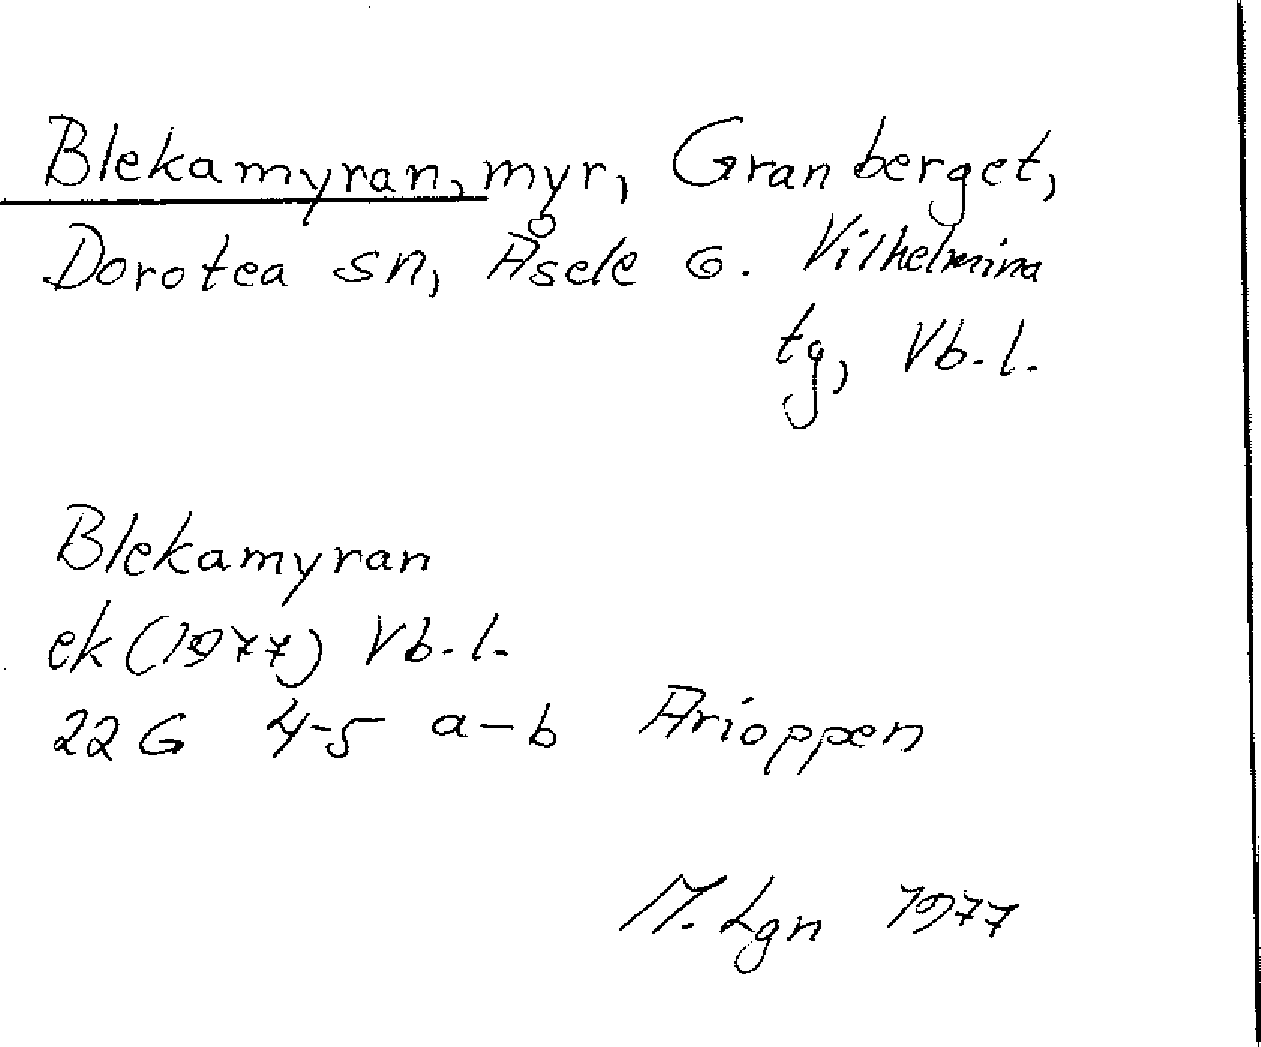 Blekamyran, myr, Granberget,
Dorotea sn, Åsele o. Vilhelmina
tg, Vb. l.
Blekamyran
ek (1977) Vb. l.
22 G 4-5 a-b Arioppen
M. Lgn 1977